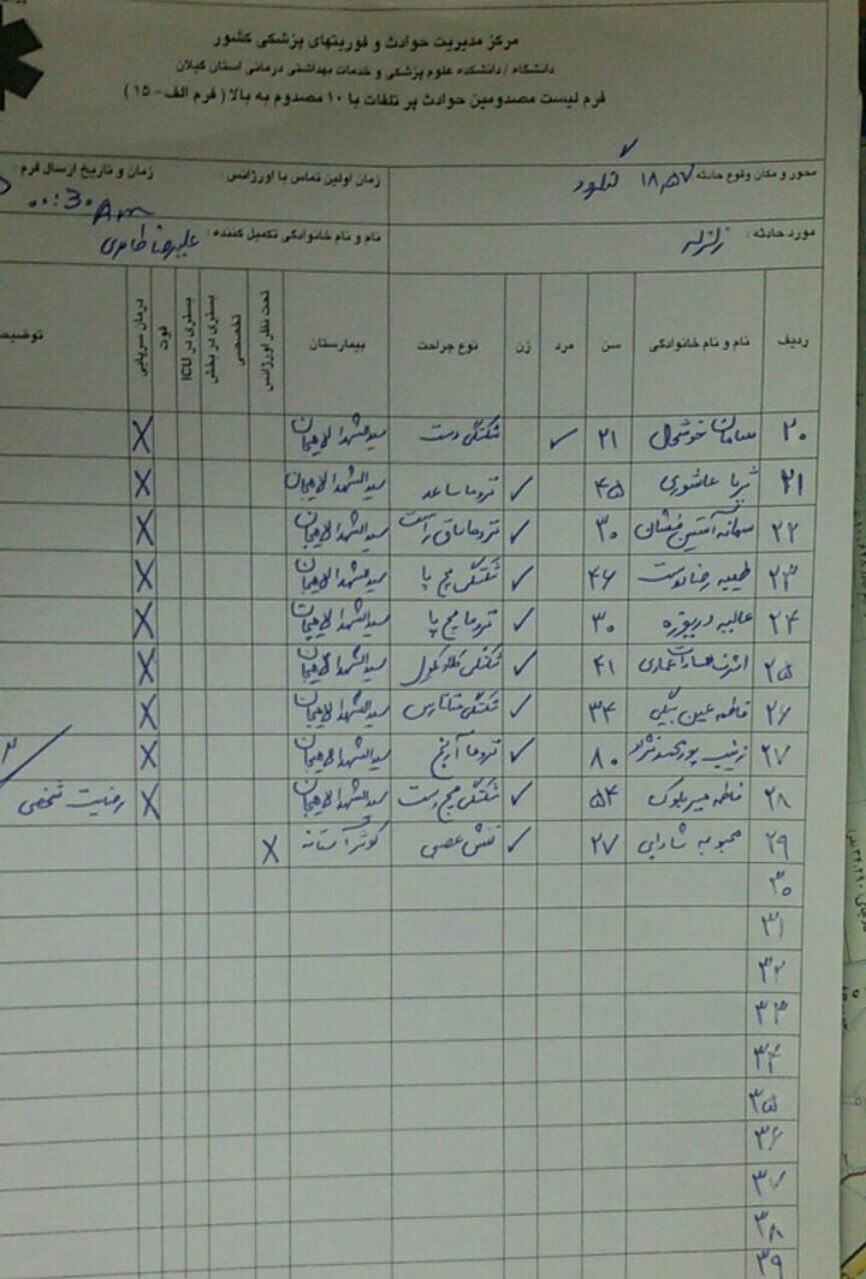 مرکز مدیریت حوادث و فوریتهای پزشکی کشور
دانشگاه / دانشکده علوم پزشکی و خدمات بهداشتی درمانی استان گیلان
فرم لیست مصدومین حوادث پر تلفات با ۱۰ مصدوم به بالا ( فرم الف- ۱۵ )
محور و مکان وقوع حادثه ۱۸,۵۷ زمان اولین تماس با اورژانس : زمان و تاریخ ارسال فرم :
۰۰:۳۰ Am
مورد حادثه : زلزله نام و نام خانوادگی تکمیل کننده : علیرضا طاهری
ردیف نام و نام خانوادگی سن مرد زن نوع جراحت بیمارستان تحت نظر اورژانس بستری در بخش تخصصی بستری در ICU فوت درمان سرپایی
۲۰ سامان خوشحال ۲۱ ✓ شکستگی دست سیدالشهدا لاهیجان X
۲۱ ثریا عاشوری ۴۵ ✓ تروما ساعد سیدالشهدا لاهیجان X
۲۲ سمانه آستین فشان ۳۰ ✓ تروما ساق راست سیدالشهدا لاهیجان X
۲۳ طیبه رضادوست ۴۶ ✓ شکستگی مچ پا سیدالشهدا لاهیجان X
۲۴ عالیه ۳۰ ✓ تروما مچ پا سیدالشهدا لاهیجان X
۲۵ اشرف السادات عمادی ۴۱ ✓ شکستگی سیدالشهدا لاهیجان X
۲۶ فاطمه عین بیگی ۳۴ ✓ شکستگی سیدالشهدا لاهیجان X
۲۷ زینب پورمحمدنژاد ۸۰ ✓ تروما آرنج سیدالشهدا لاهیجان X
۲۸ فاطمه میربلوک ۵۴ ✓ شکستگی مچ دست سیدالشهدا لاهیجان X رضایت شخصی
۲۹ محبوبه ۲۷ ✓ تنش عصبی کوثر آستانه X
۳۰
۳۱
۳۲
۳۳
۳۴
۳۵
۳۶
۳۷
۳۸
۳۹